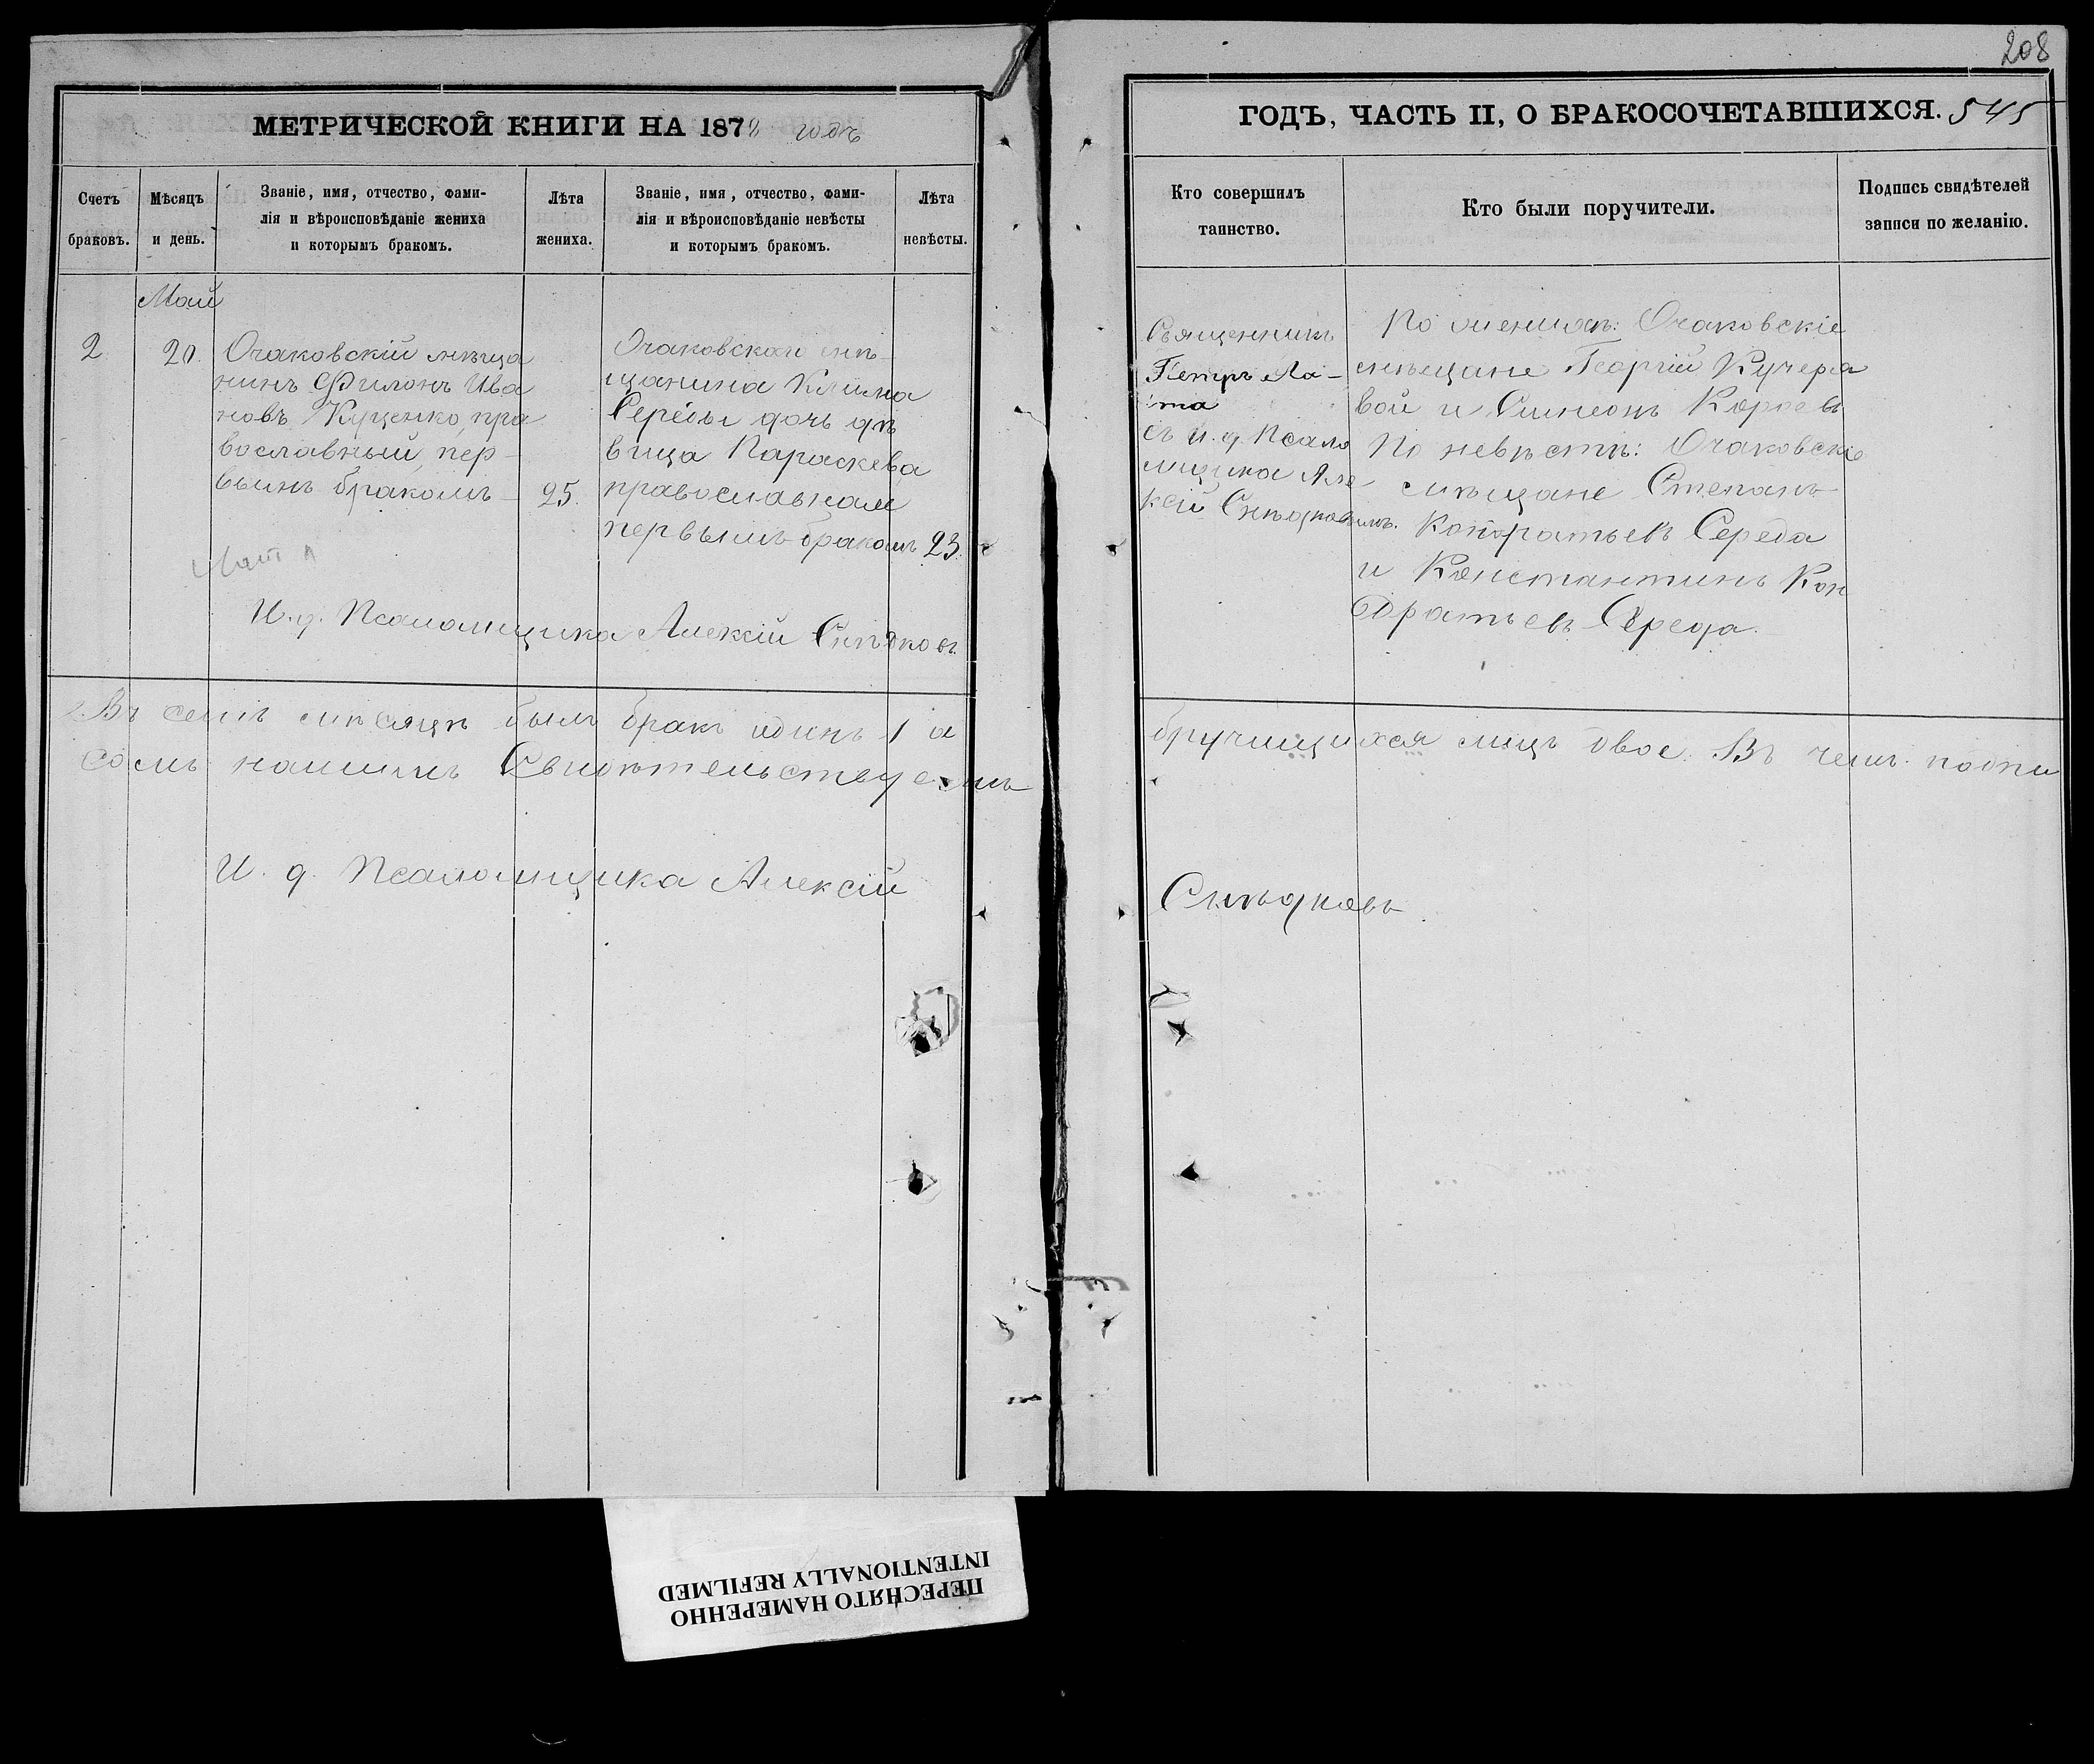 208
МЕТРИЧЕСКОЙ КНИГИ НА 1878 годъ
ГОДЪ, ЧАСТЬ II, О БРАКОСОЧЕТАВШИХСЯ. 545
Счетъ браковъ.
Мѣсяцъ и день.
Званіе, имя, отчество, фами-
лія и вѣроисповѣданіе жениха
и которымъ бракомъ.
Лѣта жениха.
Званіе, имя, отчество, фами-
лія и вѣроисповѣданіе невѣсты
и которымъ бракомъ.
Лѣта невѣсты.
Кто совершилъ
таинство.
Кто были поручители.
Подпись свидѣтелей
записи по желанію.
Май
2
20.
Очаковскій мѣща
нинъ Филонъ Ива
новъ Куценко, пра
вославный, пер-
вымъ бракомъ
25.
Очаковскаго мѣ-
щанина Клима
Середы дочь дѣ
вица Параскева,
православная
первымъ бракомъ
23.
И. д. Псаломщика Алексій Слѣдковъ.
Священникъ
Петръ
съ и. д. Псало
мщика Але
ксій
По женихѣ: Очаковскіе
мѣщане Георгій Кучеря
вой и Симеонъ
По невѣстѣ: Очаковскіе
мѣщане Степанъ
Кондратьевъ Середа
и Константинъ Кон
дратьевъ Середа.
Въ семъ мѣсяцѣ былъ бракъ одинъ 1 а
бручищихся лицъ двое. Въ чемъ подпи
сомъ нашимъ Свидѣтельствуемъ
И. д. Псаломщика Алексій
Слѣдковъ.
ПЕРЕСНЯТО НАМЕРЕННО
INTENTIONALLY REFILMED